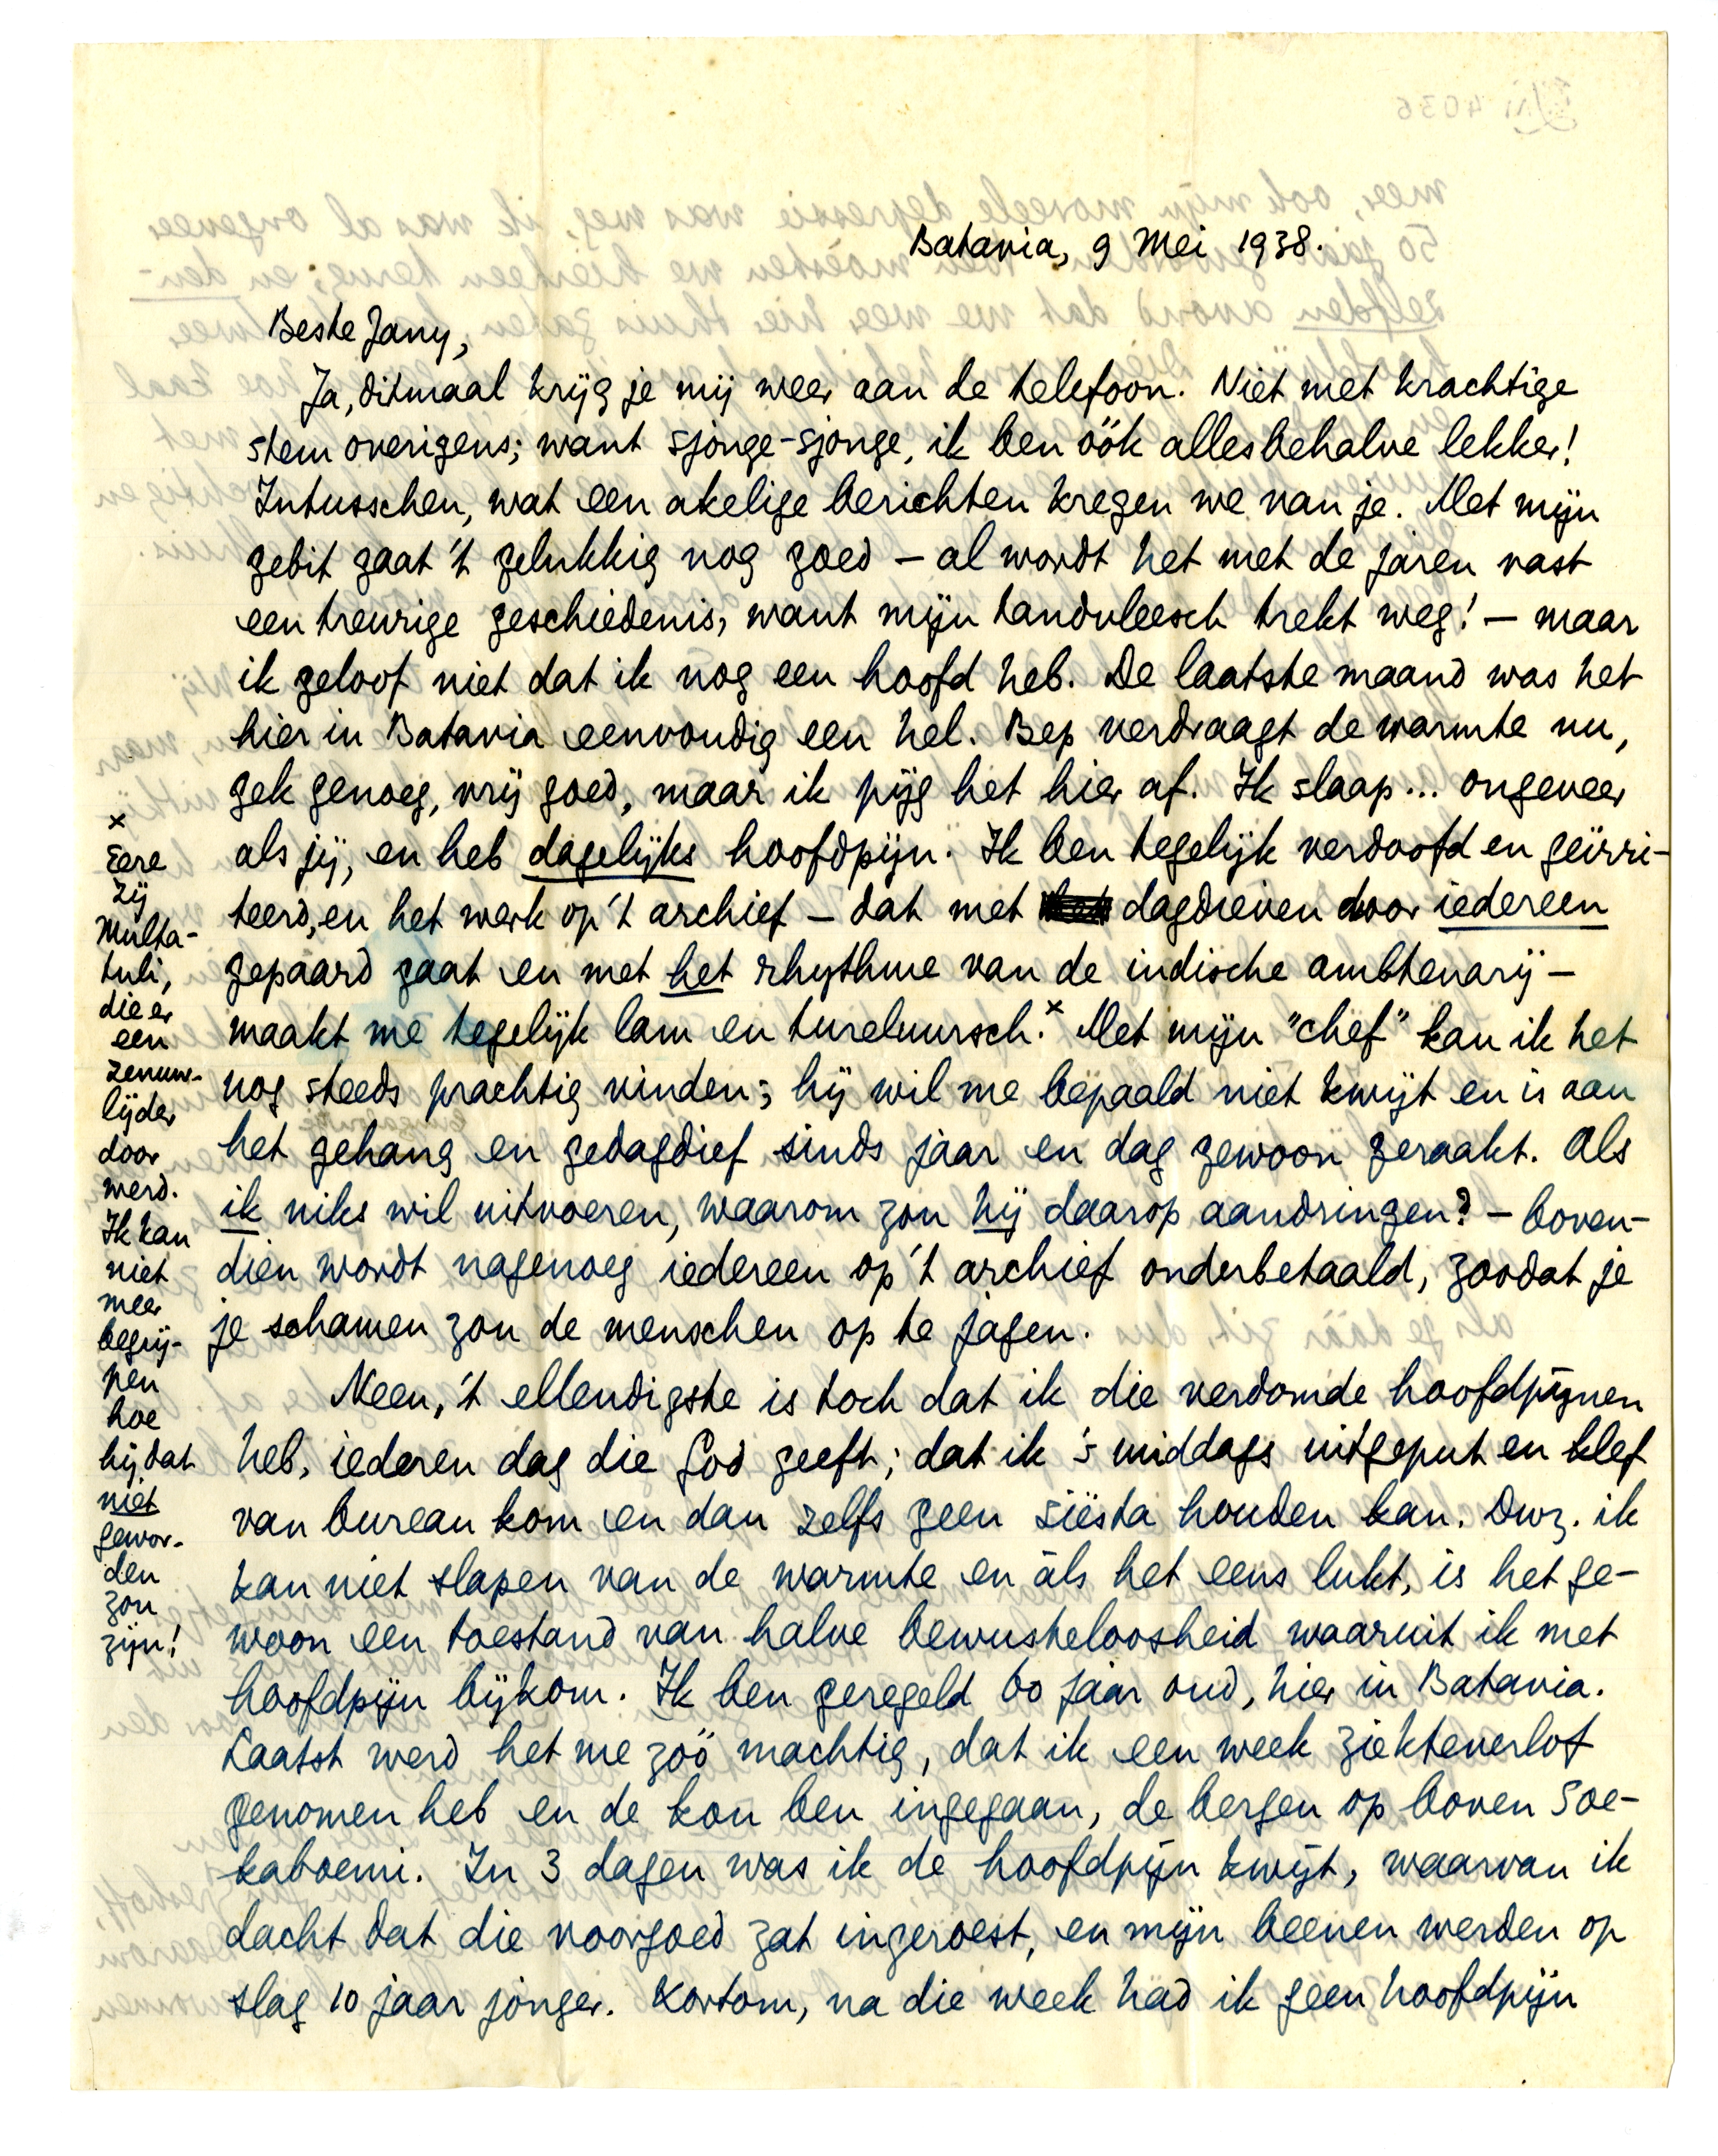 Batavia, 9 Mei 1938.
Beste Jany,
Ja, ditmaal krijg je mij weer aan de telefoon. Niet met krachtige
stem overigens; want sjonge-sjonge, ik ben óók allesbehalve lekker!
Intusschen, wat een akelige berichten kregen we van je. Met mijn
gebit gaat 't gelukkig nog goed – al wordt het met de jaren vast
een treurige geschiedenis, want mijn tandvleesch trekt weg! – maar
ik geloof niet dat ik nog een hoofd heb. De laatste maand was het
hier in Batavia eenvoudig een hel. Bep verdraagt de warmte nu,
gek genoeg, vrij goed, maar ik pijg het hier af. Ik slaap... ongeveer
als jij, en heb dagelijks hoofdpijn. Ik ben tegelijk verdoofd en geïrri-
teerd, en het werk op 't archief – dat met dagdieven door iedereen
gepaard gaat en met het rhythme van de indische ambtenarij –
maakt me tegelijk lam en tureluursch.ˣ Met mijn "chef" kan ik het
nog steeds prachtig vinden; hij wil me bepaald niet kwijt en is aan
het gehang en gedagdief sinds jaar en dag gewoon geraakt. Als
ik niks wil uitvoeren, waarom zou hij daarop aandringen? – boven-
dien wordt nagenoeg iedereen op 't archief onderbetaald, zoodat je
je schamen zou de menschen op te jagen.
Neen, 't ellendigste is toch dat ik die verdomde hoofdpijnen
heb, iederen dag die God geeft; dat ik 's middags uitgeput en klef
van bureau kom en dan zelfs geen siësta houden kan. Dwz. ik
kan niet slapen van de warmte en àls het eens lukt, is het ge-
woon een toestand van halve bewusteloosheid waaruit ik met
hoofdpijn bijkom. Ik ben geregeld 60 jaar oud, hier in Batavia.
Laatst werd het me zóó machtig, dat ik een week ziekteverlof
genomen heb en de kou ben ingegaan, de bergen op boven Soe-
kaboemi. In 3 dagen was ik de hoofdpijn kwijt, waarvan ik
dacht dat die voorgoed zat ingeroest, en mijn beenen werden op
slag 10 jaar jonger. Kortom, na die week had ik geen hoofdpijn
x
Eere
zij
Multa-
tuli,
die er
een
zenuw-
lijder
door
werd.
Ik kan
niet
meer
begrij-
pen
hoe
hij dat
niet
gewor-
den
zou
zijn!